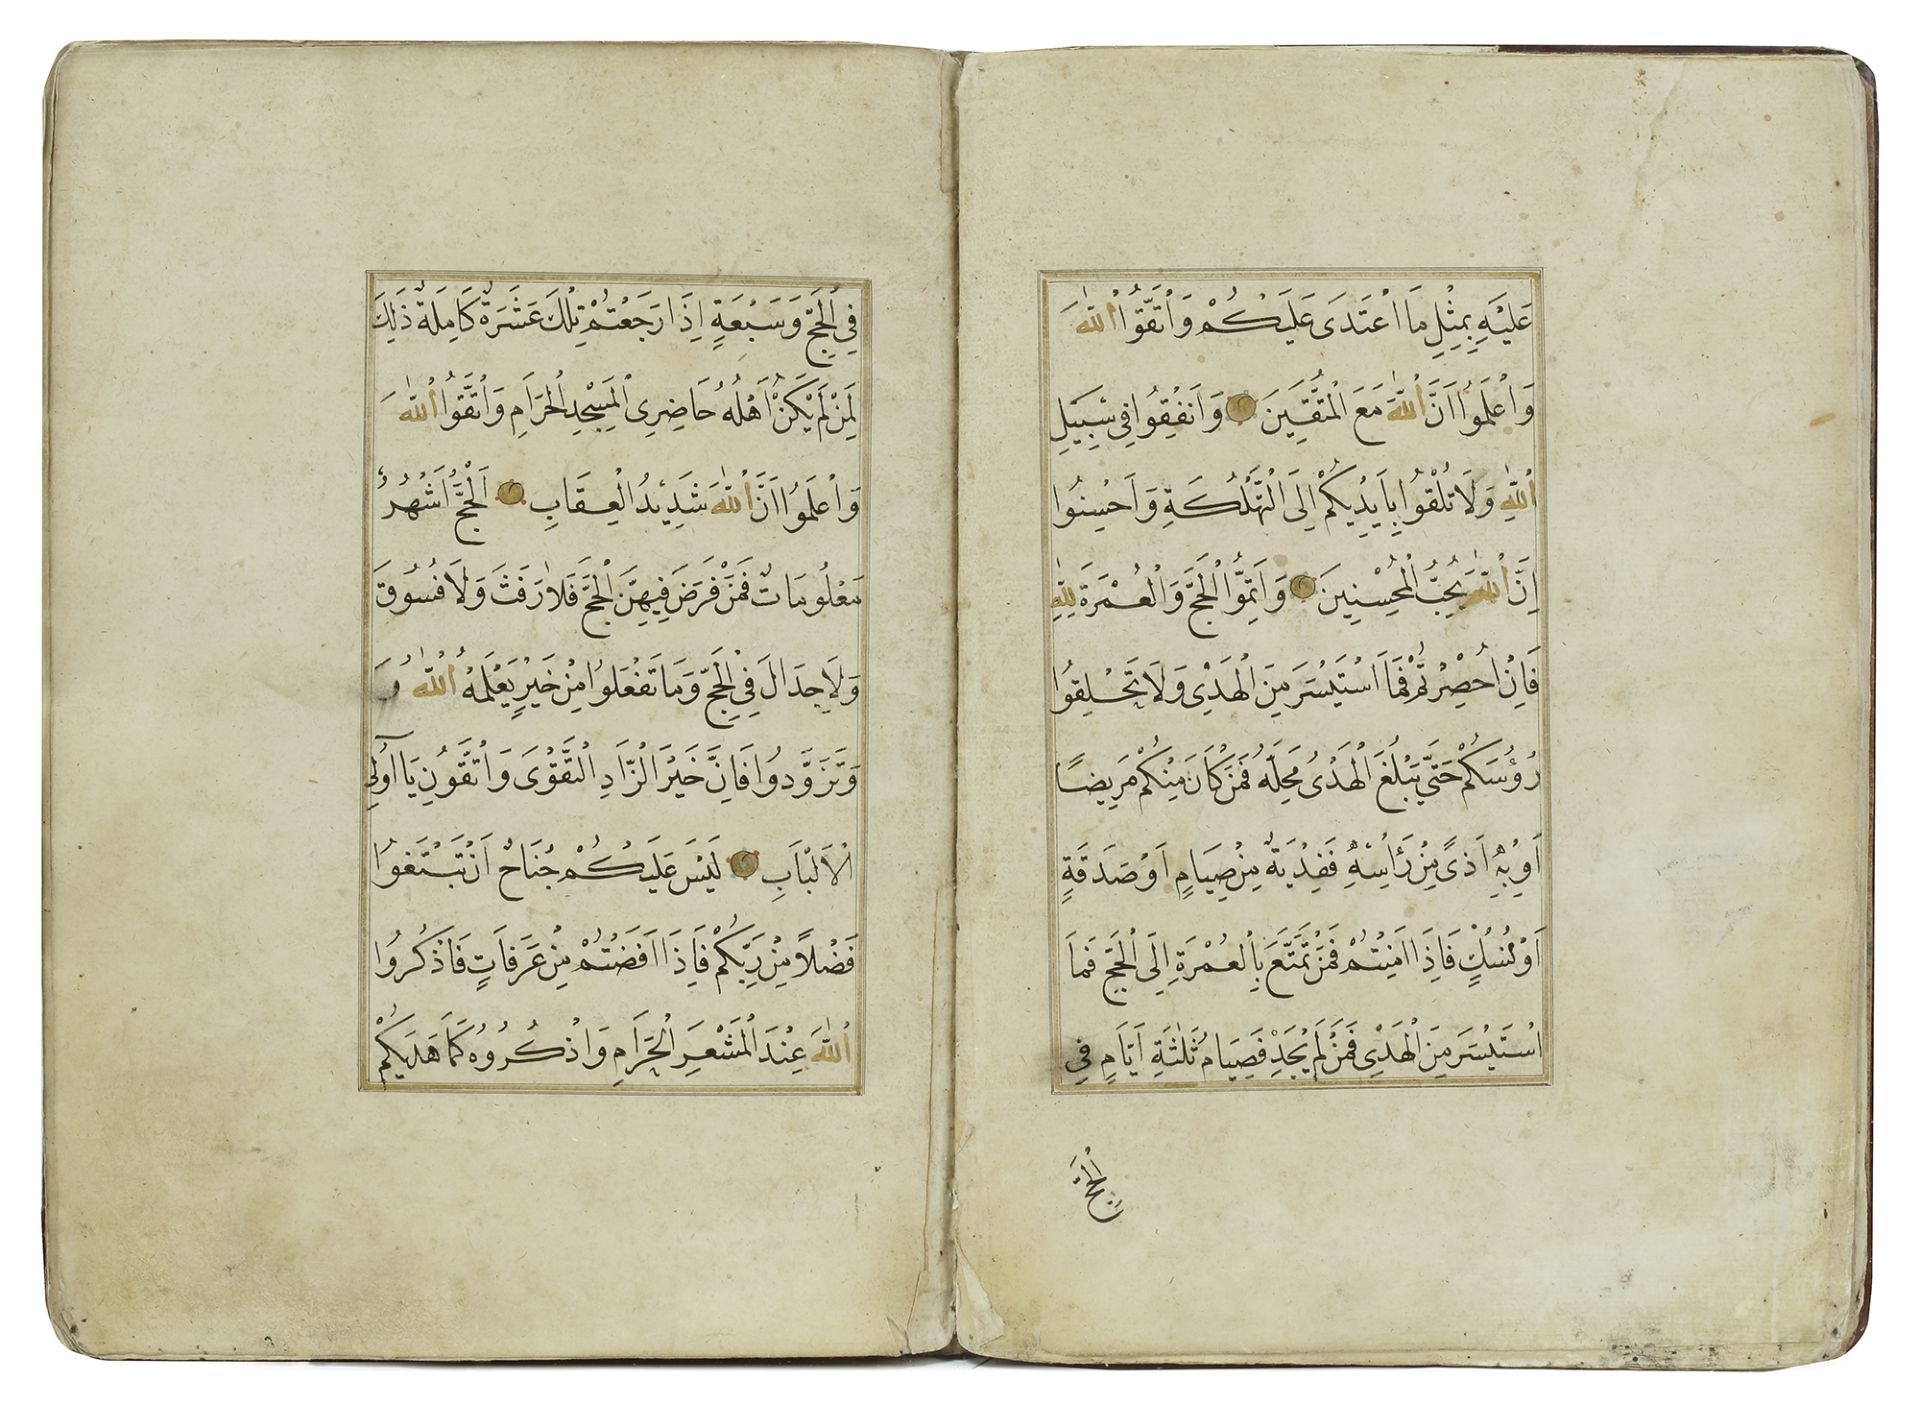 عَلَيْهِ بِمِثْلِ مَا اعْتَدَى عَلَيْكُمْ وَاتَّقُوا اللّٰهَ
وَاعْلَمُوا اَنَّ اللّٰهَ مَعَ الْمُتَّقِينَ وَاَنْفِقُوا فِي سَبِيلِ
اللّٰهِ وَلَا تُلْقُوا بِاَيْدِيكُمْ اِلَى التَّهْلُكَةِ وَاَحْسِنُوا
اِنَّ اللّٰهَ يُحِبُّ الْمُحْسِنِينَ وَاَتِمُّوا الْحَجَّ وَالْعُمْرَةَ لِلّٰهِ
فَاِنْ اُحْصِرْتُمْ فَمَا اسْتَيْسَرَ مِنَ الْهَدْيِ وَلَا تَحْلِقُوا
رُؤُسَكُمْ حَتَّى يَبْلُغَ الْهَدْيُ مَحِلَّهُ فَمَنْ كَانَ مِنْكُمْ مَرِيضًا
اَوْ بِهِ اَذًى مِنْ رَأْسِهِ فَفِدْيَةٌ مِنْ صِيَامٍ اَوْ صَدَقَةٍ
اَوْ نُسُكٍ فَاِذَا اَمِنْتُمْ فَمَنْ تَمَتَّعَ بِالْعُمْرَةِ اِلَى الْحَجِّ فَمَا
اسْتَيْسَرَ مِنَ الْهَدْيِ فَمَنْ لَمْ يَجِدْ فَصِيَامُ ثَلٰثَةِ اَيَّامٍ فِي
الْحَجِّ
فِي الْحَجِّ وَسَبْعَةٍ اِذَا رَجَعْتُمْ تِلْكَ عَشَرَةٌ كَامِلَةٌ ذَلِكَ
لِمَنْ لَمْ يَكُنْ اَهْلُهُ حَاضِرِي الْمَسْجِدِ الْحَرَامِ وَاتَّقُوا اللّٰهَ
وَاعْلَمُوا اَنَّ اللّٰهَ شَدِيدُ الْعِقَابِ اَلْحَجُّ اَشْهُرٌ
مَعْلُومَاتٌ فَمَنْ فَرَضَ فِيهِنَّ الْحَجَّ فَلَا رَفَثَ وَلَا فُسُوقَ
وَلَا جِدَالَ فِي الْحَجِّ وَمَا تَفْعَلُوا مِنْ خَيْرٍ يَعْلَمْهُ اللّٰهُ وَ
وَتَزَوَّدُوا فَاِنَّ خَيْرَ الزَّادِ التَّقْوَى وَاتَّقُونِ يَا اُولِي
الْاَلْبَابِ لَيْسَ عَلَيْكُمْ جُنَاحٌ اَنْ تَبْتَغُوا
فَضْلًا مِنْ رَبِّكُمْ فَاِذَا اَفَضْتُمْ مِنْ عَرَفَاتٍ فَاذْكُرُوا
اللّٰهَ عِنْدَ الْمَشْعَرِ الْحَرَامِ وَاذْكُرُوهُ كَمَا هَدَيكُمْ